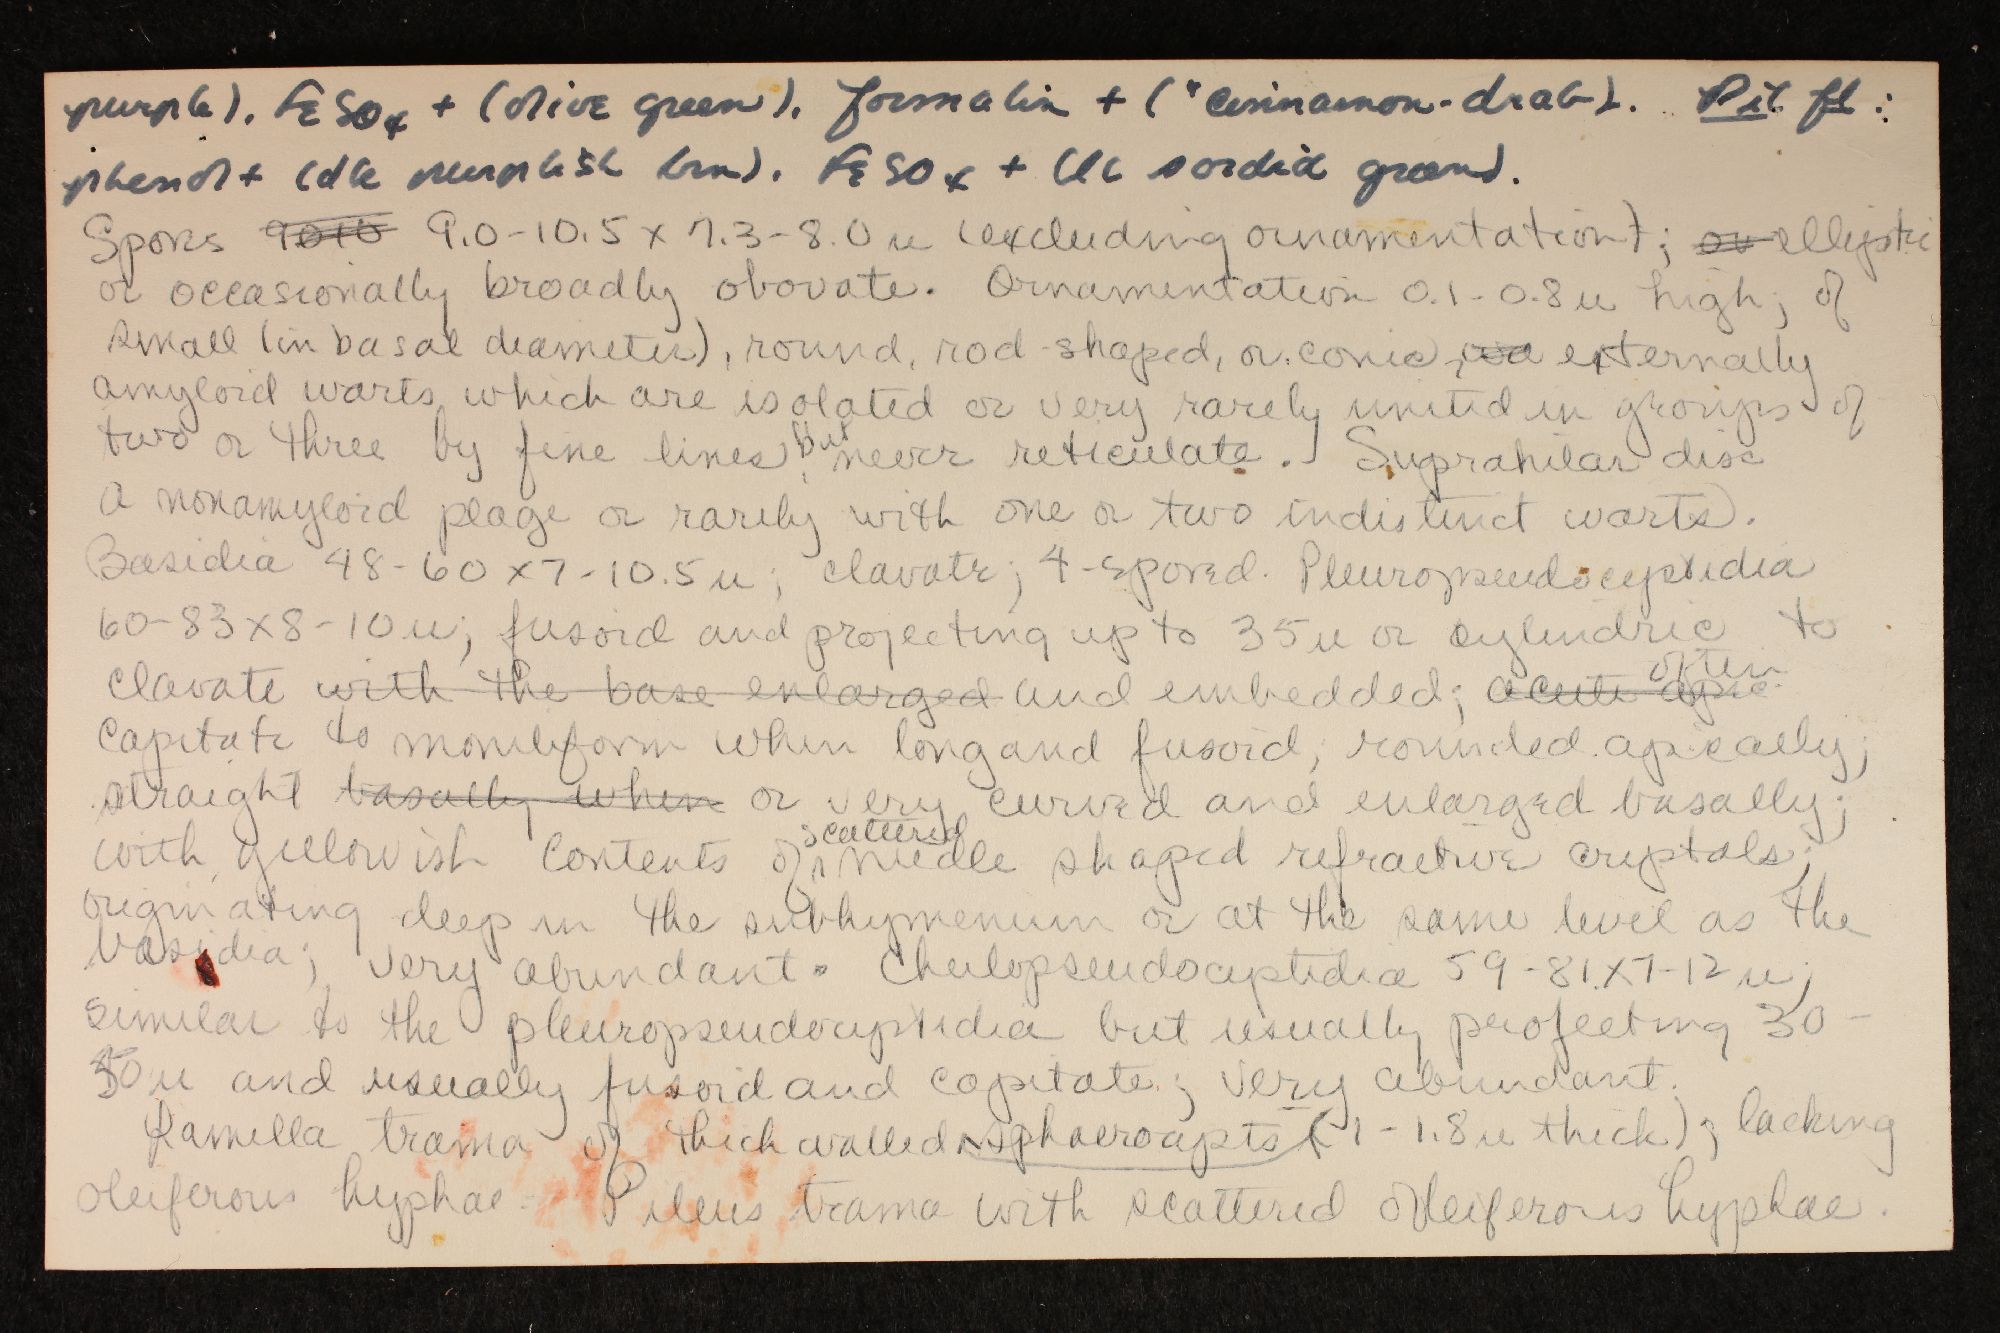 purple). FeSO4 + (olive green). formalin + ("cinnamon-drab). Pil fl:
phenol + (dk purplish brn). FeSO4 + (lt sordid green).
Spores 9.0-10.5 x 7.3-8.0 u (excluding ornamentation); elliptic
or occasionally broadly obovate. Ornamentation 0.1-0.8 u high; of
small (in basal diameter), round, rod-shaped, or conic, externally
amyloid warts which are isolated or very rarely united in groups of
two or three by fine lines but never reticulate. Suprahilar disc
a nonamyloid plage or rarely with one or two indistinct warts).
Basidia 48-60 x 7-10.5 u; clavate; 4-spored. Pleuropseudocystidia
60-83 x 8-10 u; fusoid and projecting up to 35 u or cylindric to
clavate with the base enlarged and embedded; acute apic often
capitate to moniliform when long and fusoid; rounded apically;
straight basally when or very curved and enlarged basally;
with yellowish contents of scattered needle shaped refractive cryptals;
originating deep in the subhymenium or at the same level as the
basidia; very abundant. Cheilopseudocyptidia 59-81 x 7-12 u;
similar to the pleuropseudocyptidia but usually projecting 30-
50 u and usually fusoid and capitate; very abundant.
Lamella trama of thick walled sphaerocysts (1-1.8 u thick); lacking
oleiferous hyphae. Pileus trama with scattered oleiferous hyphae.